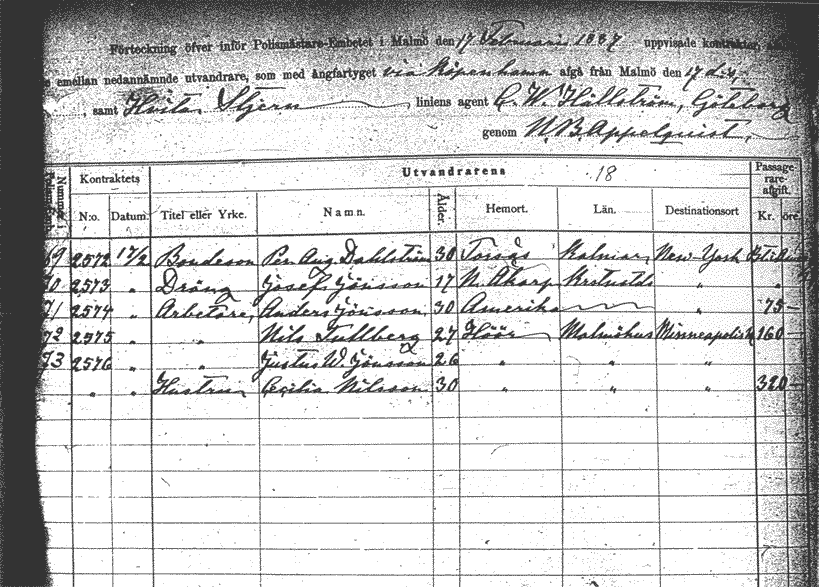 Förteckning öfver inför Polismästare-Embetet i Malmö den 17 Februari 1887 uppvisade kontrakter,
emellan nedannämnde utvandrare, som med ångfartyget via Köpenhamn afgå från Malmö den 17 d:s,
samt Hvita Stjern liniens agent C. W. Hällström, Göteborg
genom N. B. Appelquist.
Kontraktets Utvandrarens 18 Passagerareafgift.
N:o. Datum. Titel eller Yrke. Namn. Ålder. Hemort. Län. Destinationsort Kr. öre.
69 2572 17/2 Bondeson Per Aug. Dahlström 30 Torsås Kalmar New-York
70 2573 " Dräng Josef Jönsson 17 N. Åkarp " "
71 2574 " Arbetare, Anders Jönsson 30 Amerika " 75 –
72 2575 " " Nils Tullberg 27 Höör Malmöhus Minneapolis 160 –
73 2576 " " Justus W. Jönsson 26 " " "
" " Hustru Cecilia Nilsson 30 " " " 320 –